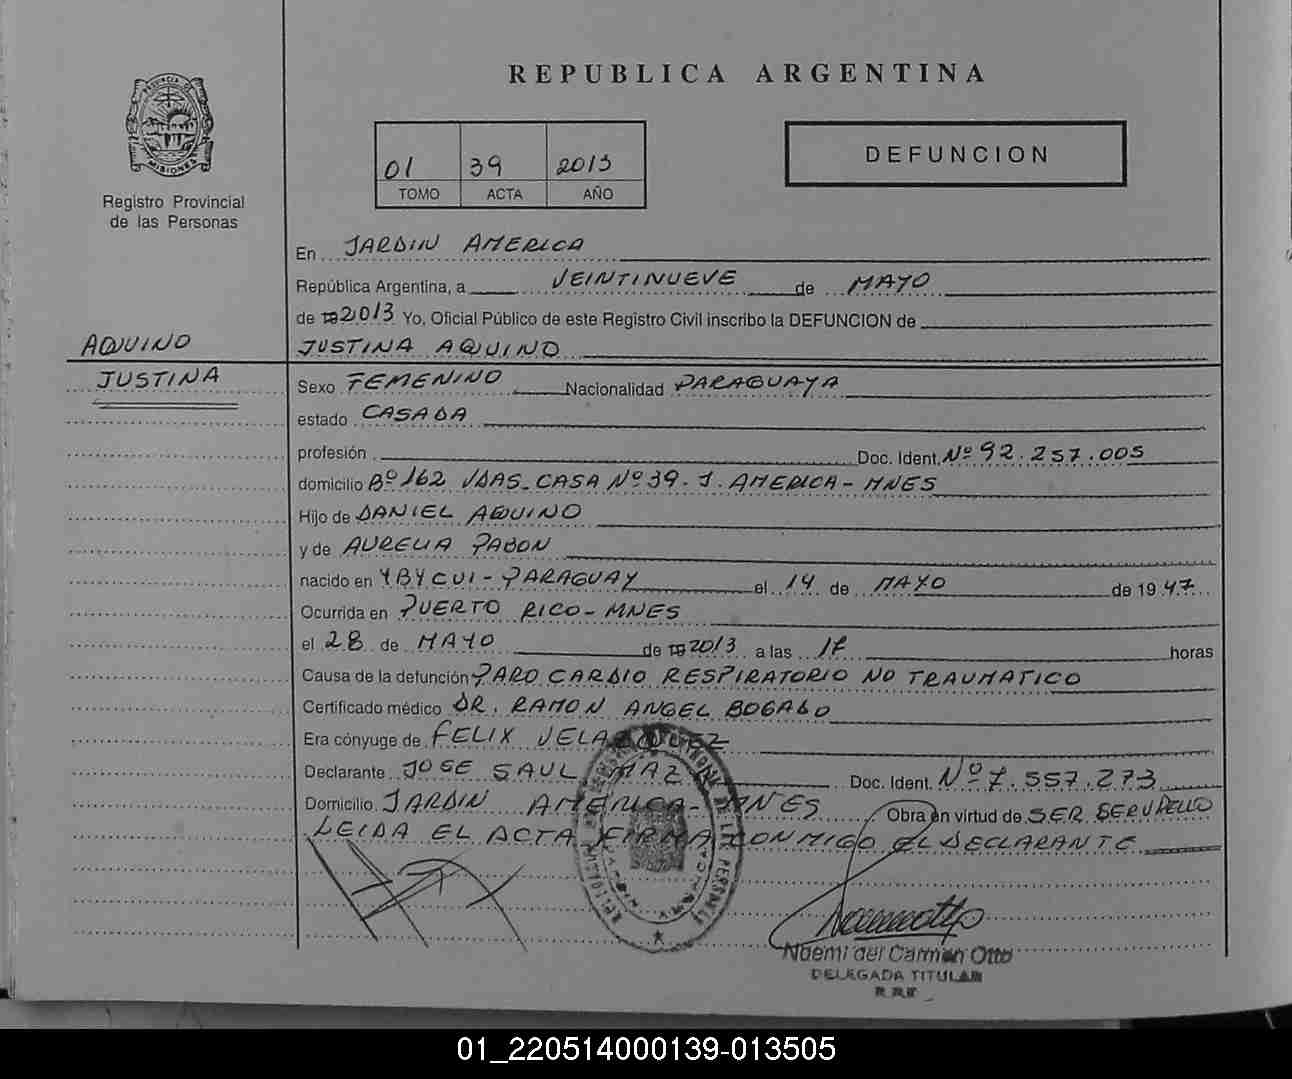 REPUBLICA ARGENTINA
PROVINCIA DE MISIONES
Registro Provincial
de las Personas
01 39 2013
TOMO ACTA AÑO
DEFUNCION
En JARDIN AMERICA
República Argentina, a VEINTINUEVE de MAYO
de 19 2013 Yo, Oficial Público de este Registro Civil inscribo la DEFUNCION de
AQUINO
JUSTINA AQUINO
JUSTINA
Sexo FEMENINO Nacionalidad PARAGUAYA
estado CASADA
profesión Doc. Ident. Nº 92.257.005
domicilio Bº 162 VDAS. CASA Nº 39. J. AMERICA - MNES
Hijo de DANIEL AQUINO
y de AURELIA PABON
nacido en YBYCUI - PARAGUAY el 14 de MAYO de 1947
Ocurrida en PUERTO RICO - MNES
el 28 de MAYO de 19 2013 a las 17 horas
Causa de la defunción PARO CARDIO RESPIRATORIO NO TRAUMATICO
Certificado médico DR. RAMON ANGEL BOGADO
Era cónyuge de FELIX VELAZQUEZ
Declarante JOSE SAUL Doc. Ident. Nº 7.557.273
Domicilio JARDIN AMERICA - MNES Obra en virtud de SER SERV. DELLO
LEIDA EL ACTA FIRMA CONMIGO EL DECLARANTE
Noemi del Carmen Otto
DELEGADA TITULAR
01_220514000139-013505